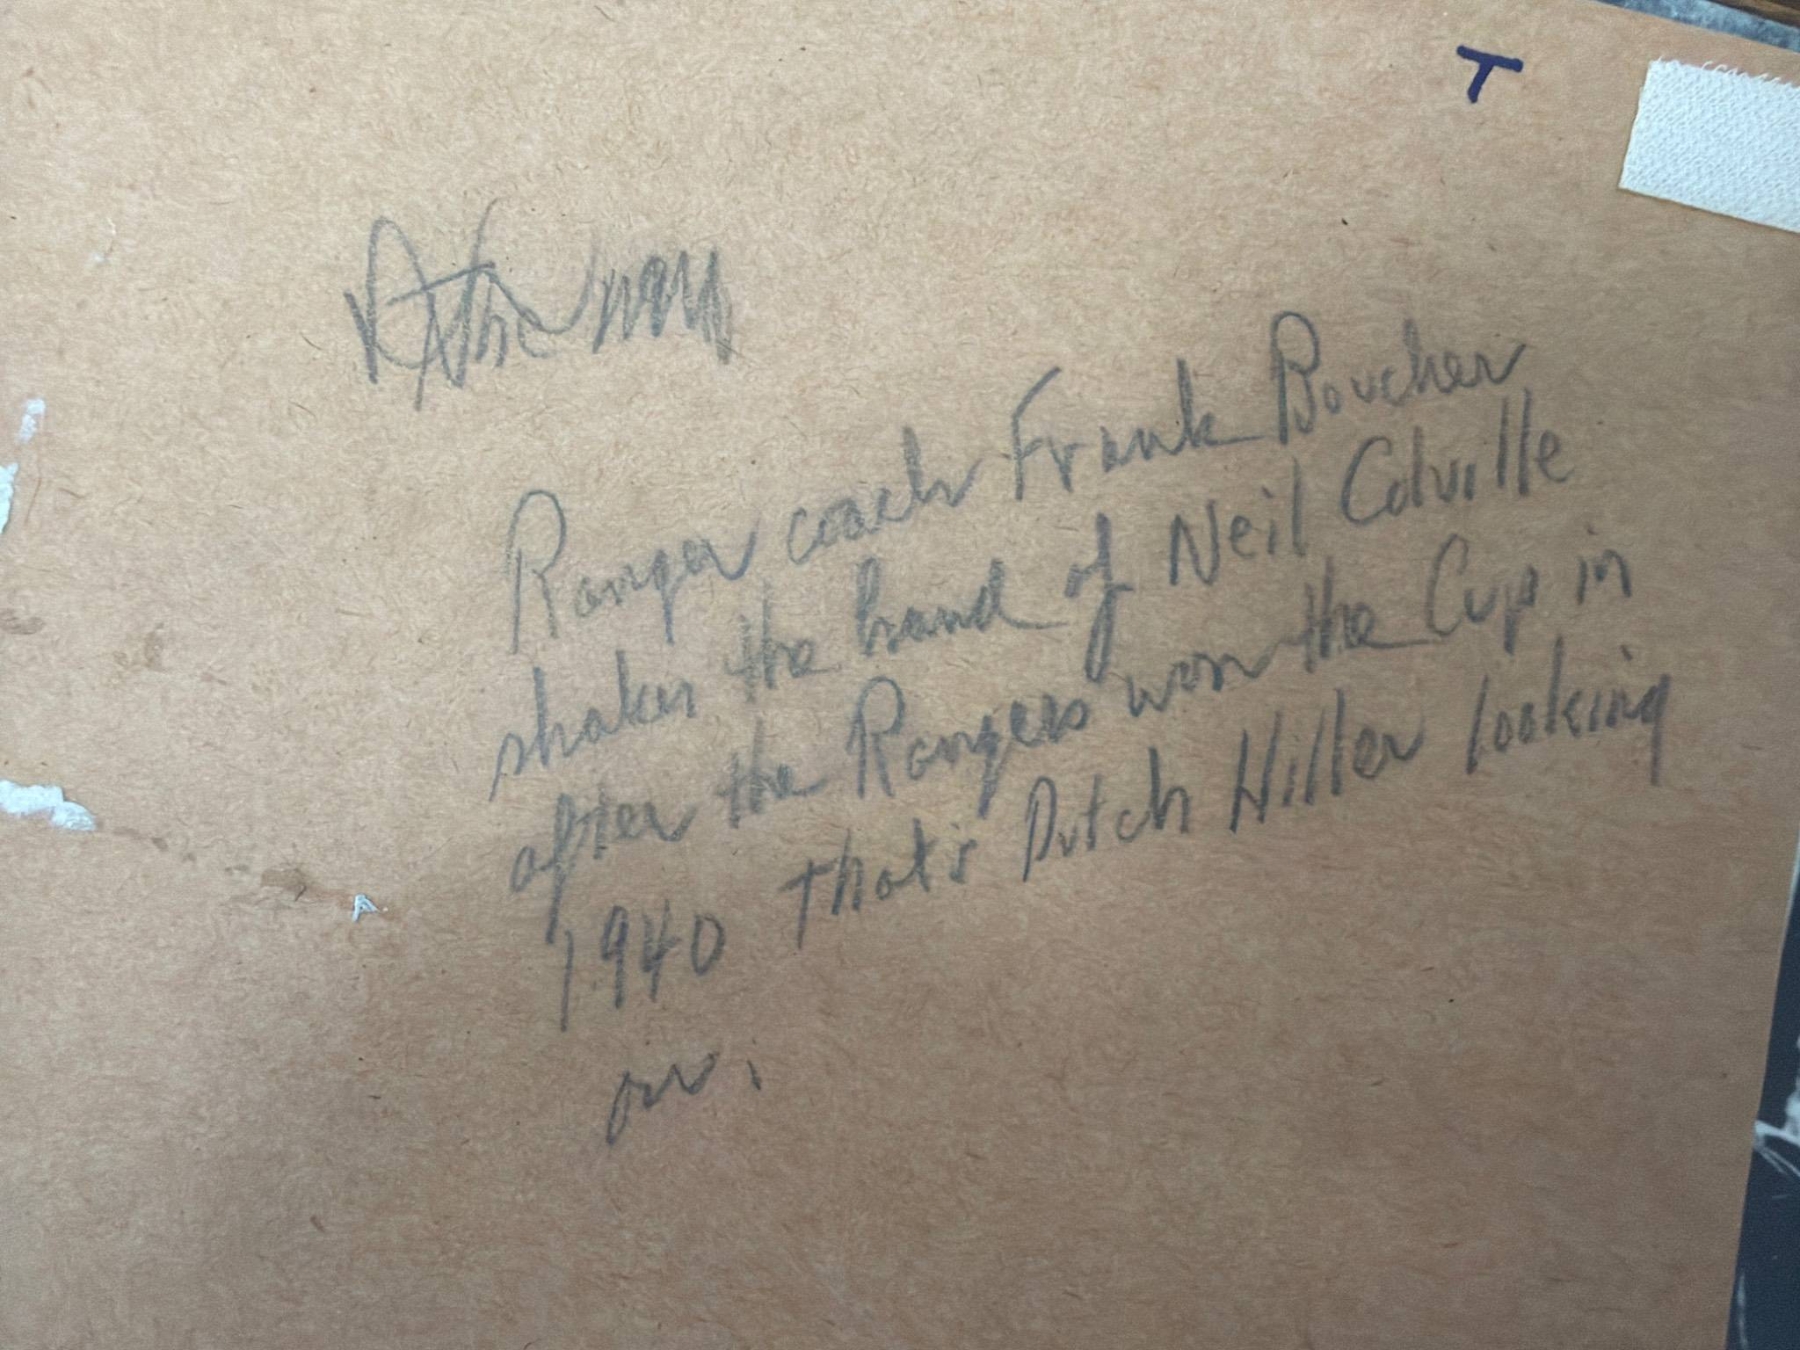 T
Ranger coach Frank Boucher
shakes the hand of Neil Colville
after the Rangers won the Cup in
1940 That's Dutch Hiller looking
on.